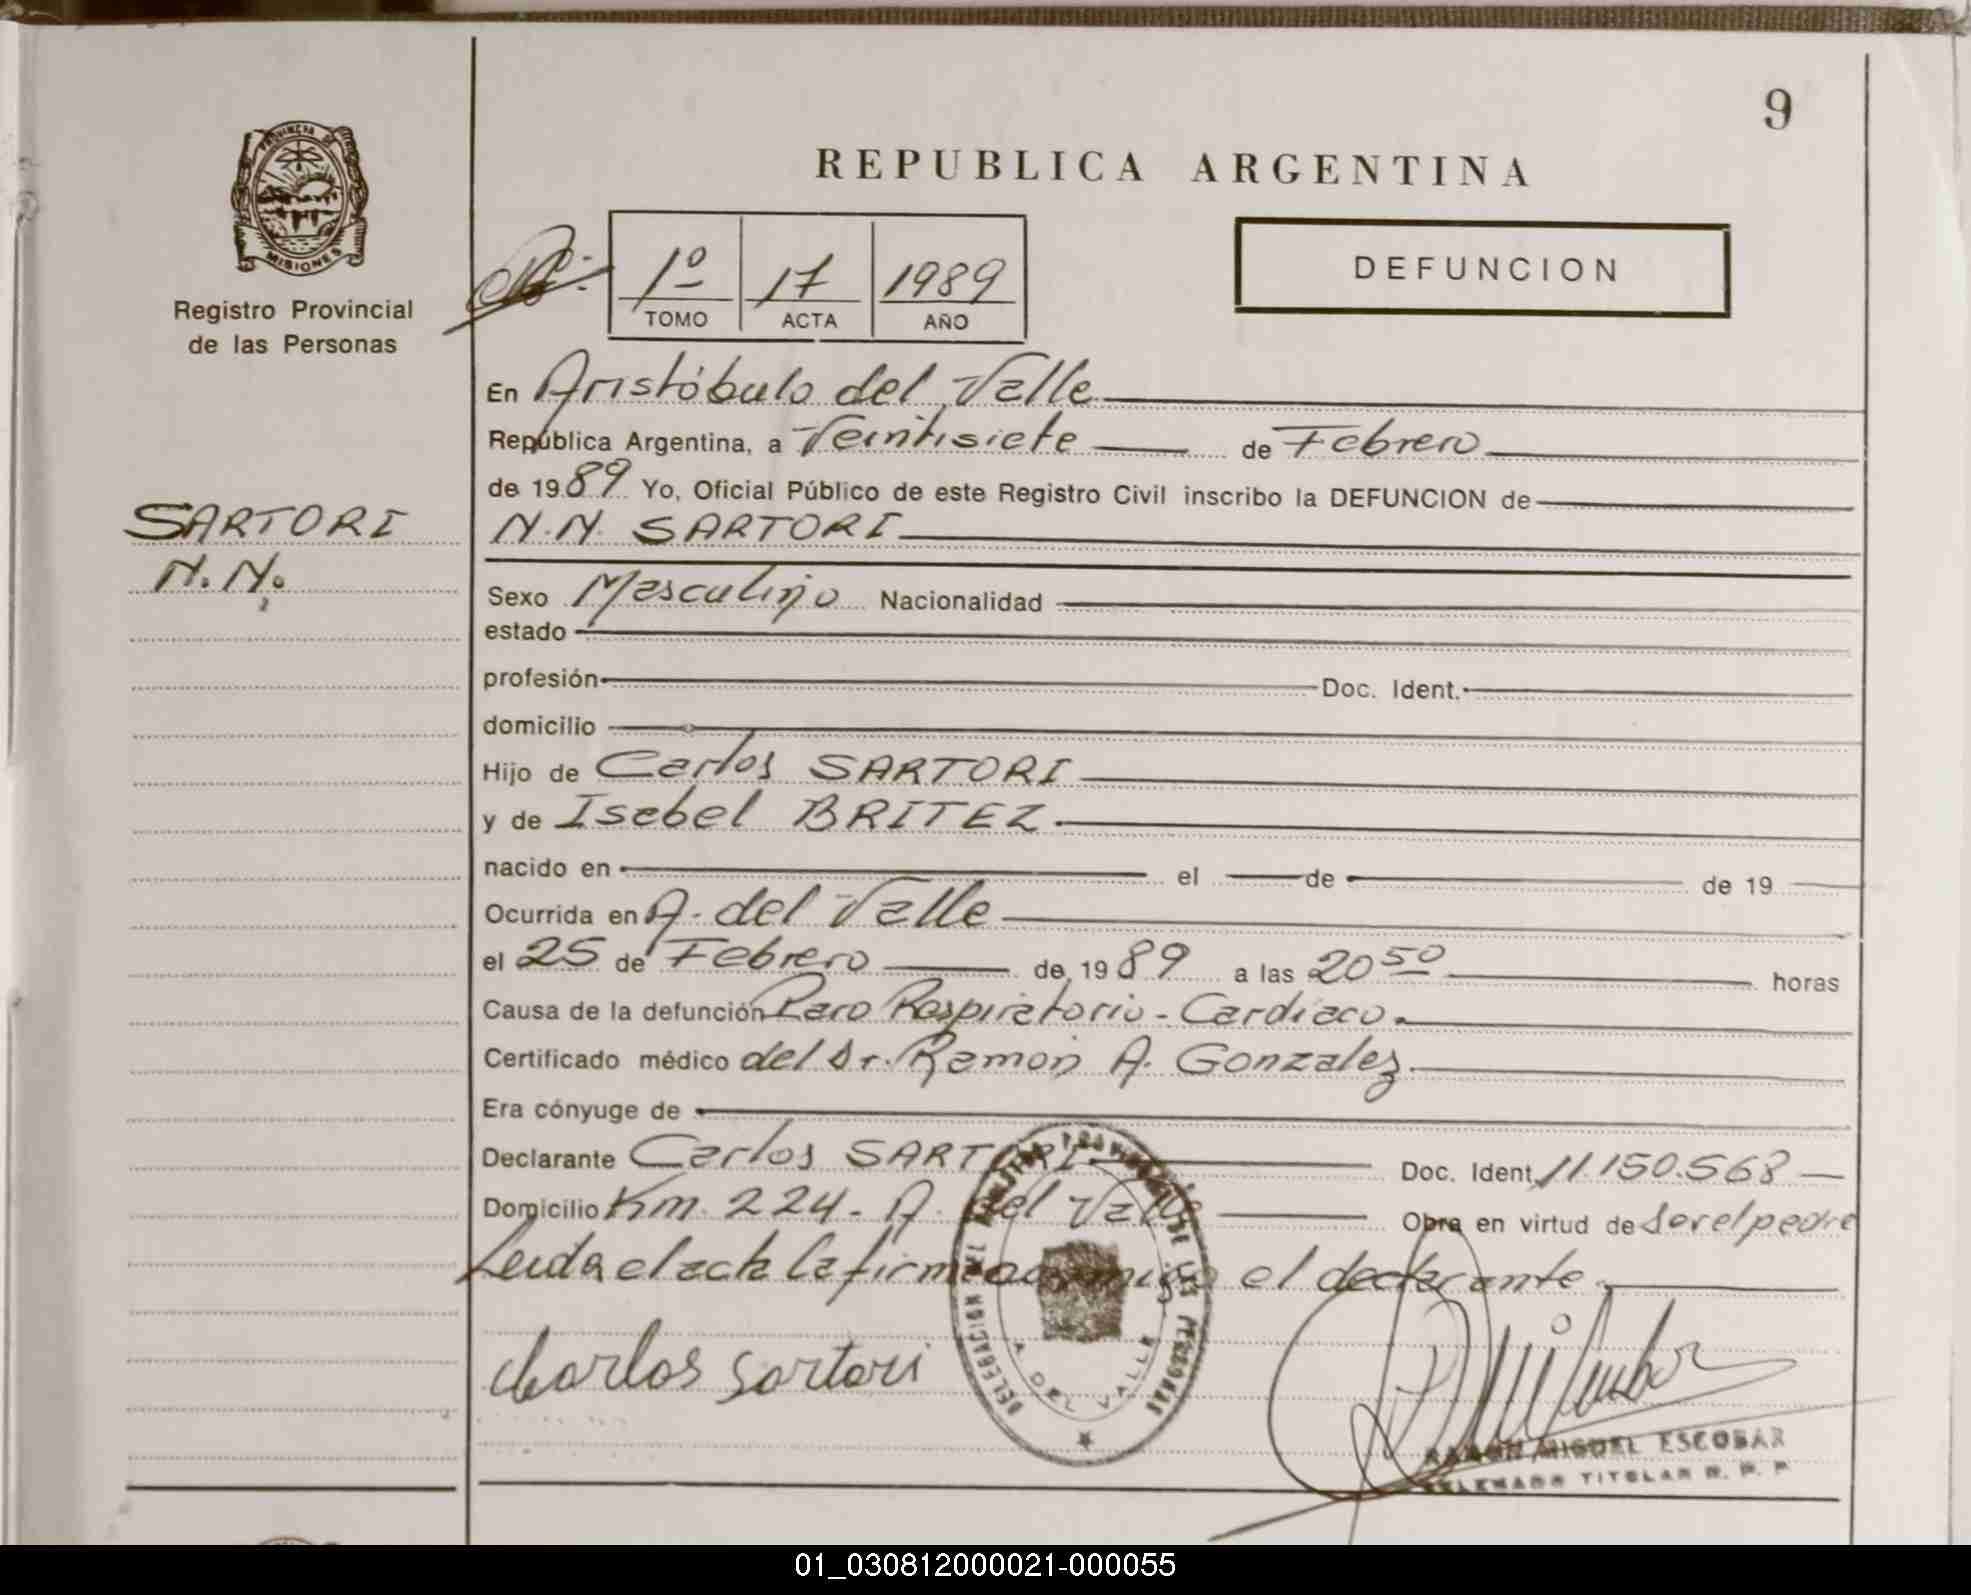 9
REPUBLICA ARGENTINA
PROVINCIA DE
MISIONES
Registro Provincial
de las Personas
1º 17 1989
TOMO ACTA AÑO
DEFUNCION
SARTORI
N.N.
En Aristóbulo del Valle
República Argentina, a Veintisiete de Febrero
de 1989 Yo, Oficial Público de este Registro Civil inscribo la DEFUNCION de
N.N. SARTORI
Sexo Masculino Nacionalidad
estado
profesión Doc. Ident.
domicilio
Hijo de Carlos SARTORI
y de Isabel BRITEZ
nacido en el de de 19
Ocurrida en A. del Valle
el 25 de Febrero de 1989 a las 20 50 horas
Causa de la defunción Paro Respiratorio - Cardiaco.
Certificado médico del Dr. Ramon A. Gonzalez
Era cónyuge de
Declarante Carlos SARTORI Doc. Ident. 11.150.568
Domicilio Km. 224 - A. del Valle Obra en virtud de ser el padre
Leida el acta la firma conmigo el declarante.
Carlos Sartori
A. DEL VALLE
RAMON MIGUEL ESCOBAR
DELEGADO TITULAR R. P. P.
01_030812000021-000055